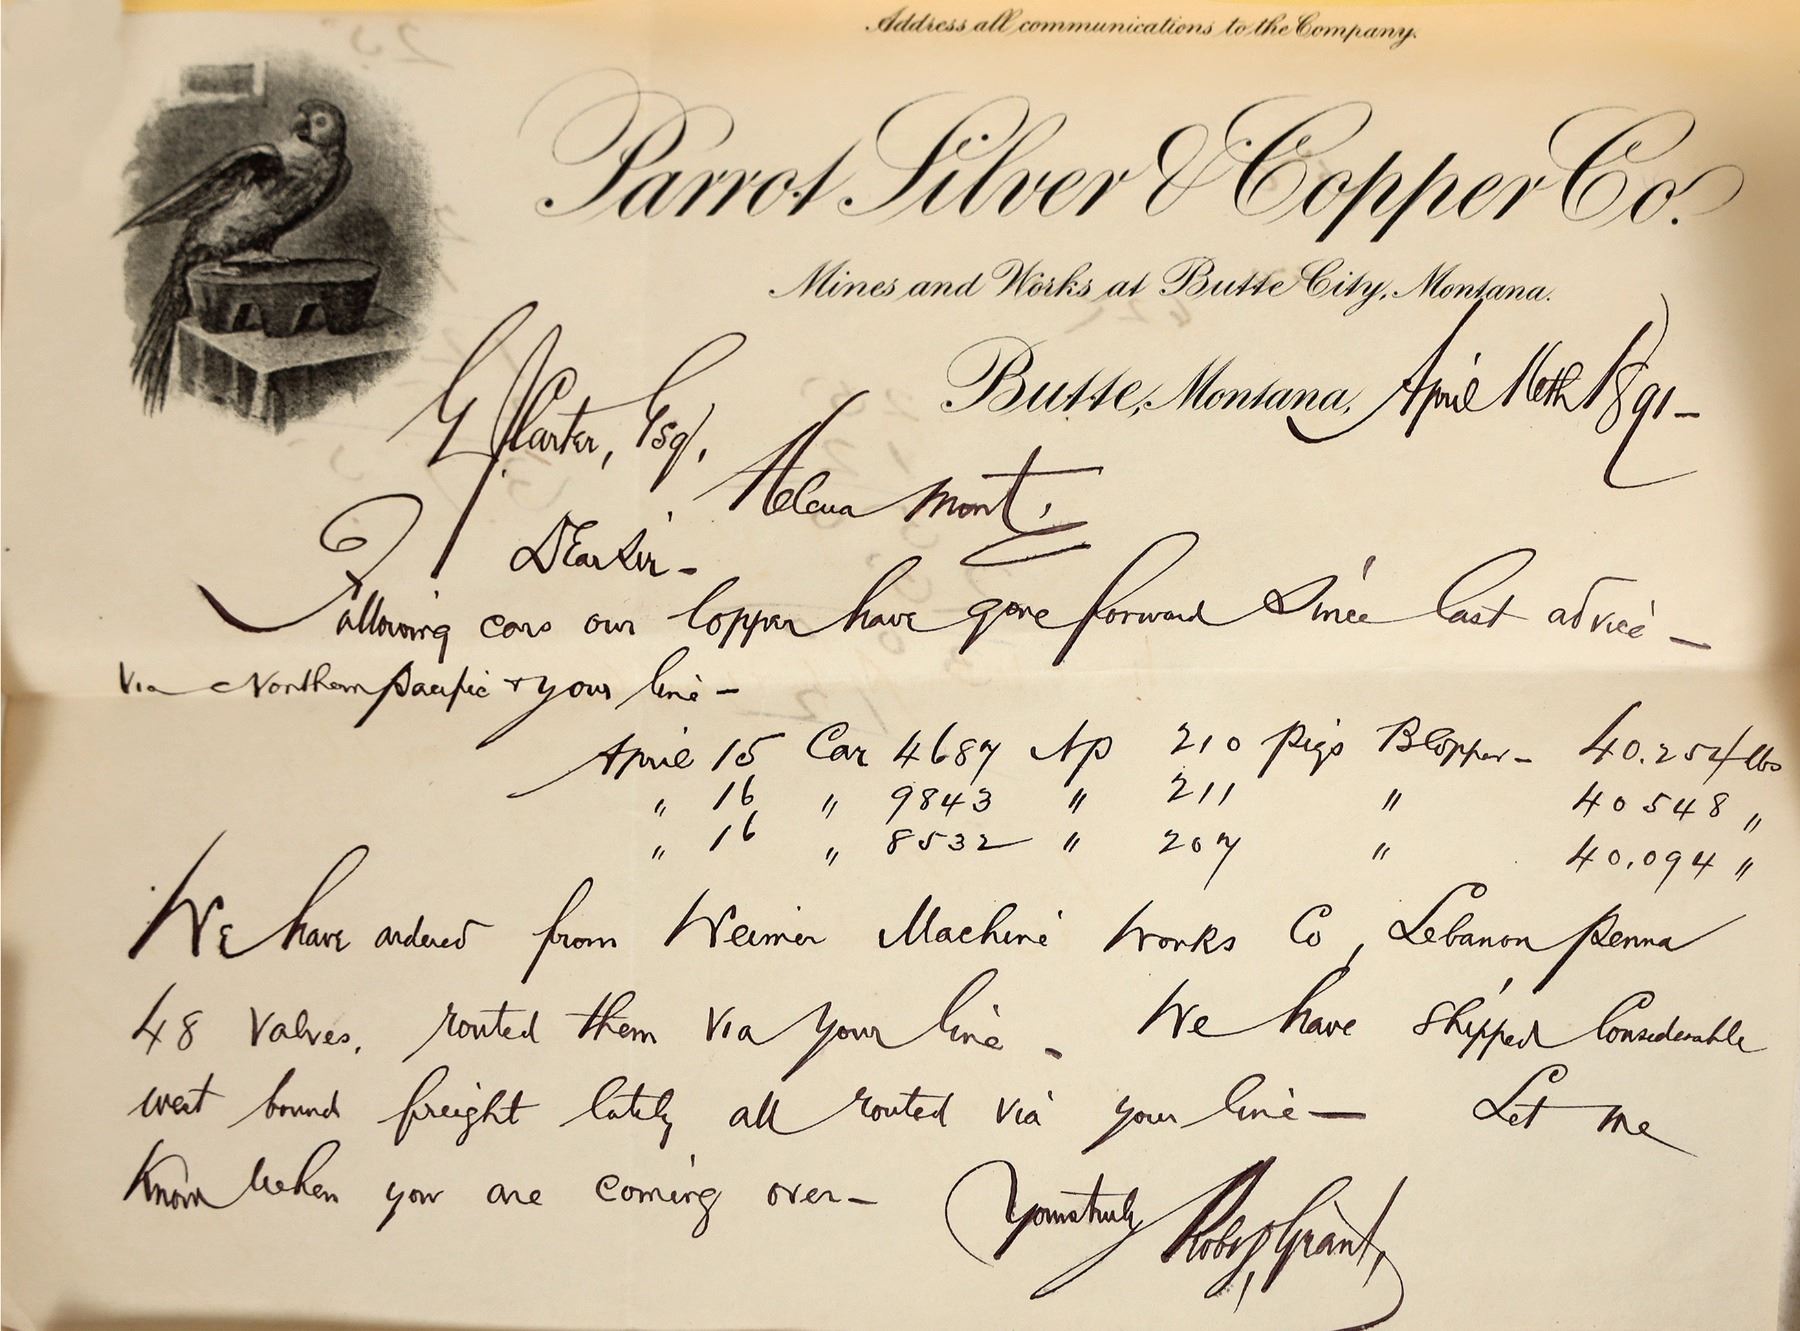 Address all communications to the Company.
Parrot Silver & Copper Co.
Mines and Works at Butte City, Montana.
Butte, Montana, April 16th 1891-
Carter, Esq,
Helena Mont,
Dear Sir -
Following cars our Copper have gone forward since last advice -
Via Northern Pacific & your line -
April 15 Car 4687 Np 210 Pigs B Copper - 40.254 lbs
" 16 " 9843 " 211 " 40548 "
" 16 " 8532 " 207 " 40.094 "
We have ordered from Weimer Machine Works Co, Lebanon Penna
48 Valves, routed them via your line - We have shipped Considerable
west bound freight lately all routed via your line - Let me
Know when you are coming over -
Yours truly
Grant,